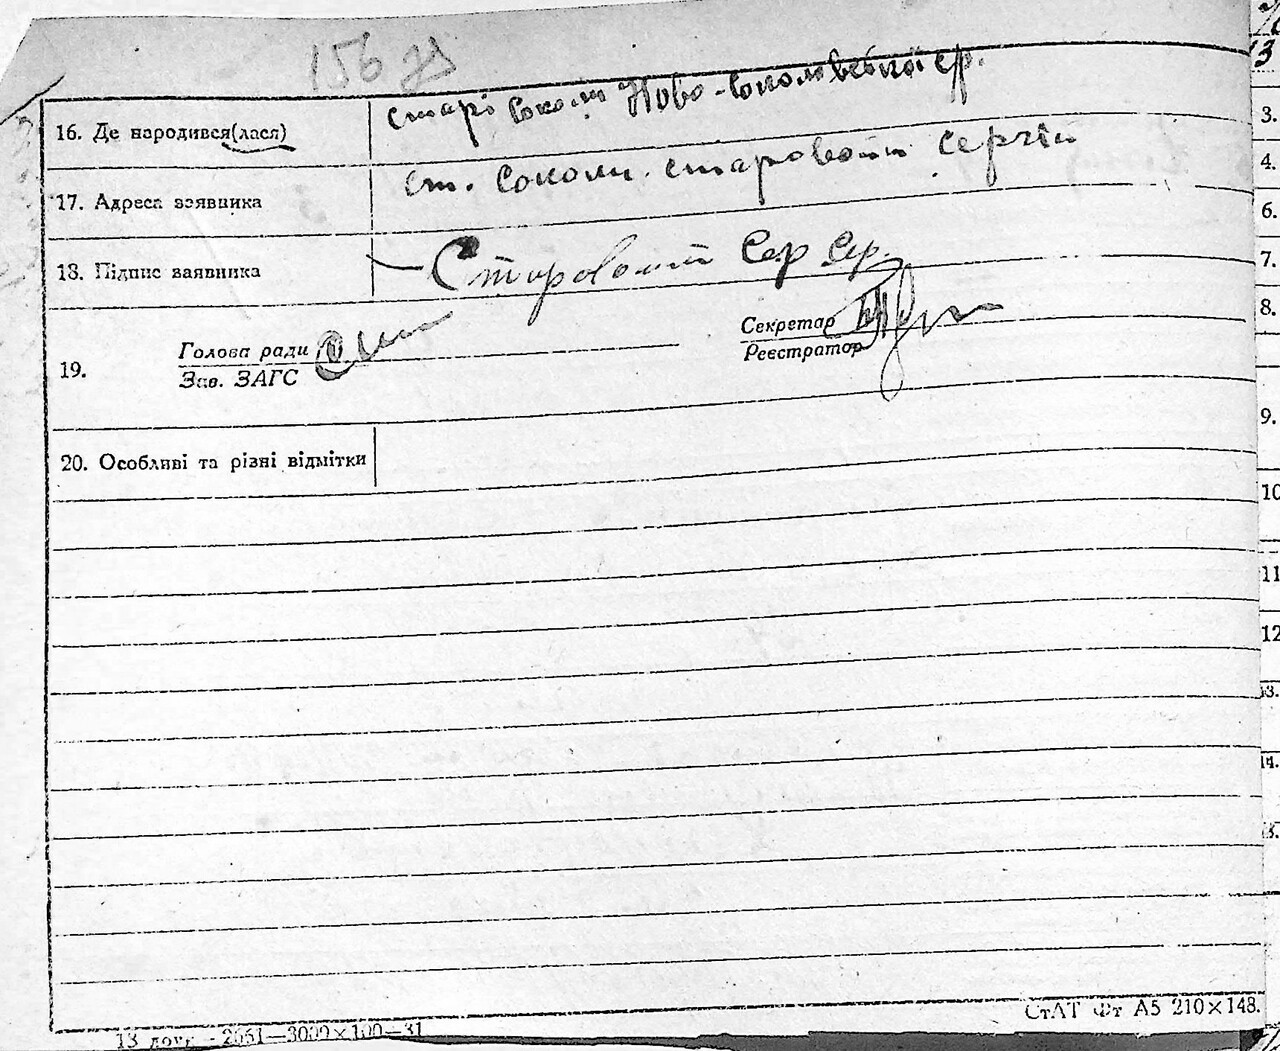 156
16. Де народився(лася) Ново-
17. Адреса заявника ст. Соколи. старовойт Сергій
18. Підпис заявника Старовойт Сер Сер.
19. Голова ради Секретар
Зав. ЗАГС Реєстратор
20. Особливі та різні відмітки
СтАТ Фт А5 210×148.
13 друк - 2661—3000×100—31
3
3.
4.
6.
7.
8.
9.
10
11
12
13.
14.